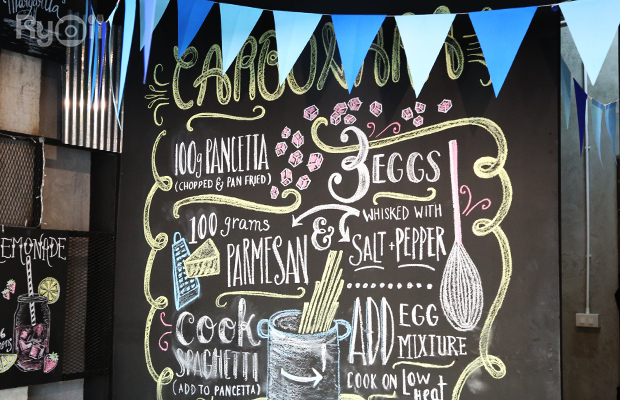 Margarita
RyOii
CARBONARA
100g PANCETTA
(CHOPPED & PAN FRIED)
3 EGGS
WHISKED WITH
SALT + PEPPER
&
100 grams
PARMESAN
LEMONADE
cook
SPAGHETTI
(ADD TO PANCETTA)
ADD EGG
MIXTURE
COOK ON Low
heat